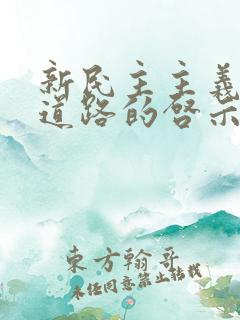 新民主主義
道路的啓示
東方翰哥
未任同意禁止转载